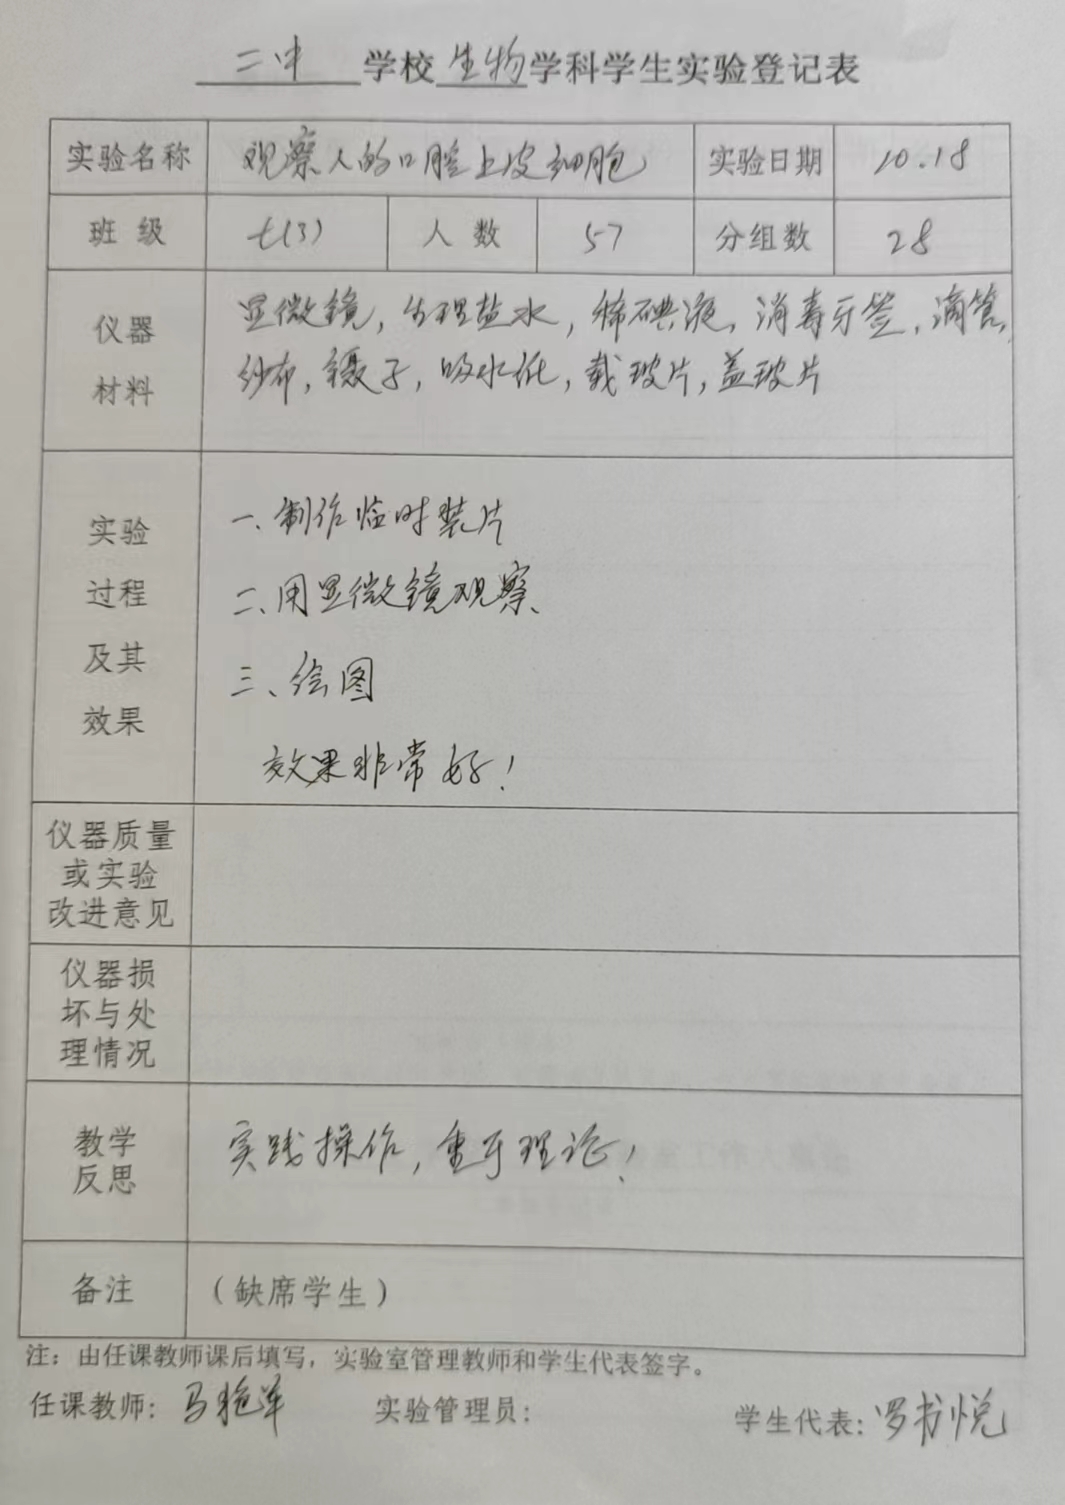 二中 学校 生物 学科学生实验登记表
实验名称 观察人的口腔上皮细胞 实验日期 10.18
班 级 七(3) 人 数 57 分组数 28
仪器
材料
显微镜,生理盐水,稀碘液,消毒牙签,滴管,
纱布,镊子,吸水纸,载玻片,盖玻片
实验
过程
及其
效果
一、制作临时装片
二、用显微镜观察、
三、绘图
效果非常好!
仪器质量
或实验
改进意见
仪器损
坏与处
理情况
教学
反思
实践操作,重于理论!
备注 (缺席学生)
注:由任课教师课后填写,实验室管理教师和学生代表签字。
任课教师: 马艳 实验管理员: 学生代表: 罗书悦